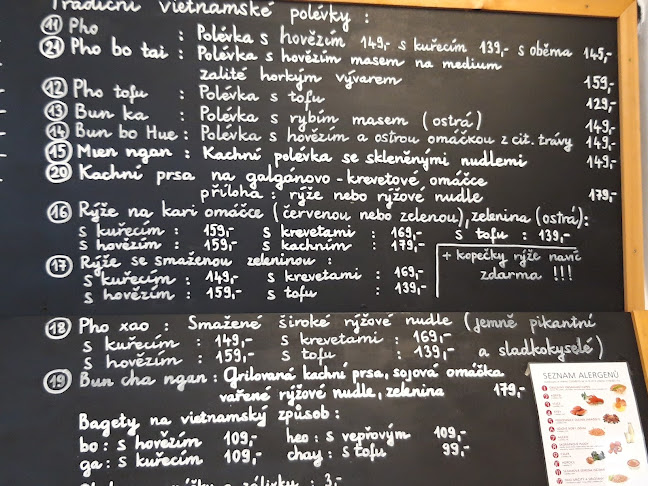 Tradiční vietnamské polévky :
11 Pho : Polévka s hovězím 149,- s kuřecím 139,- s oběma 145,-
21 Pho bo tai : Polévka s hovězím masem na medium
zalité horkým vývarem 159,-
12 Pho tofu : Polévka s tofu 129,-
13 Bun ka : Polévka s rybím masem (ostrá) 149,-
14 Bun bo Hue : Polévka s hovězím a ostrou omáčkou z cit. trávy 149,-
15 Mien ngan : Kachní polévka se skleněnými nudlemi 149,-
20 Kachní prsa na galgánovo-krevetové omáčce
příloha : rýže nebo rýžové nudle 179,-
16 Rýže na kari omáčce (červenou nebo zelenou), zelenina (ostrá):
s kuřecím : 159,- s krevetami : 169,- s tofu : 139,-
s hovězím : 159,- s kachním : 179,-
17 Rýže se smaženou zeleninou :
s kuřecím : 149,- s krevetami : 169,-
s hovězím : 159,- s tofu : 139,-
+ kopečky rýže navíc
zdarma !!!
18 Pho xao : Smažené široké rýžové nudle (jemně pikantní
s kuřecím : 149,- s krevetami : 169,-
s hovězím : 159,- s tofu : 139,- a sladkokyselé)
19 Bun cha ngan : Grilovaná kachní prsa, sojová omáčka
vařené rýžové nudle, zelenina 179,-
Bagety na vietnamský způsob :
bo : s hovězím 109,- heo : s vepřovým 109,-
ga : s kuřecím 109,- chay : s tofu 99.-
: 3,-
SEZNAM ALERGENŮ